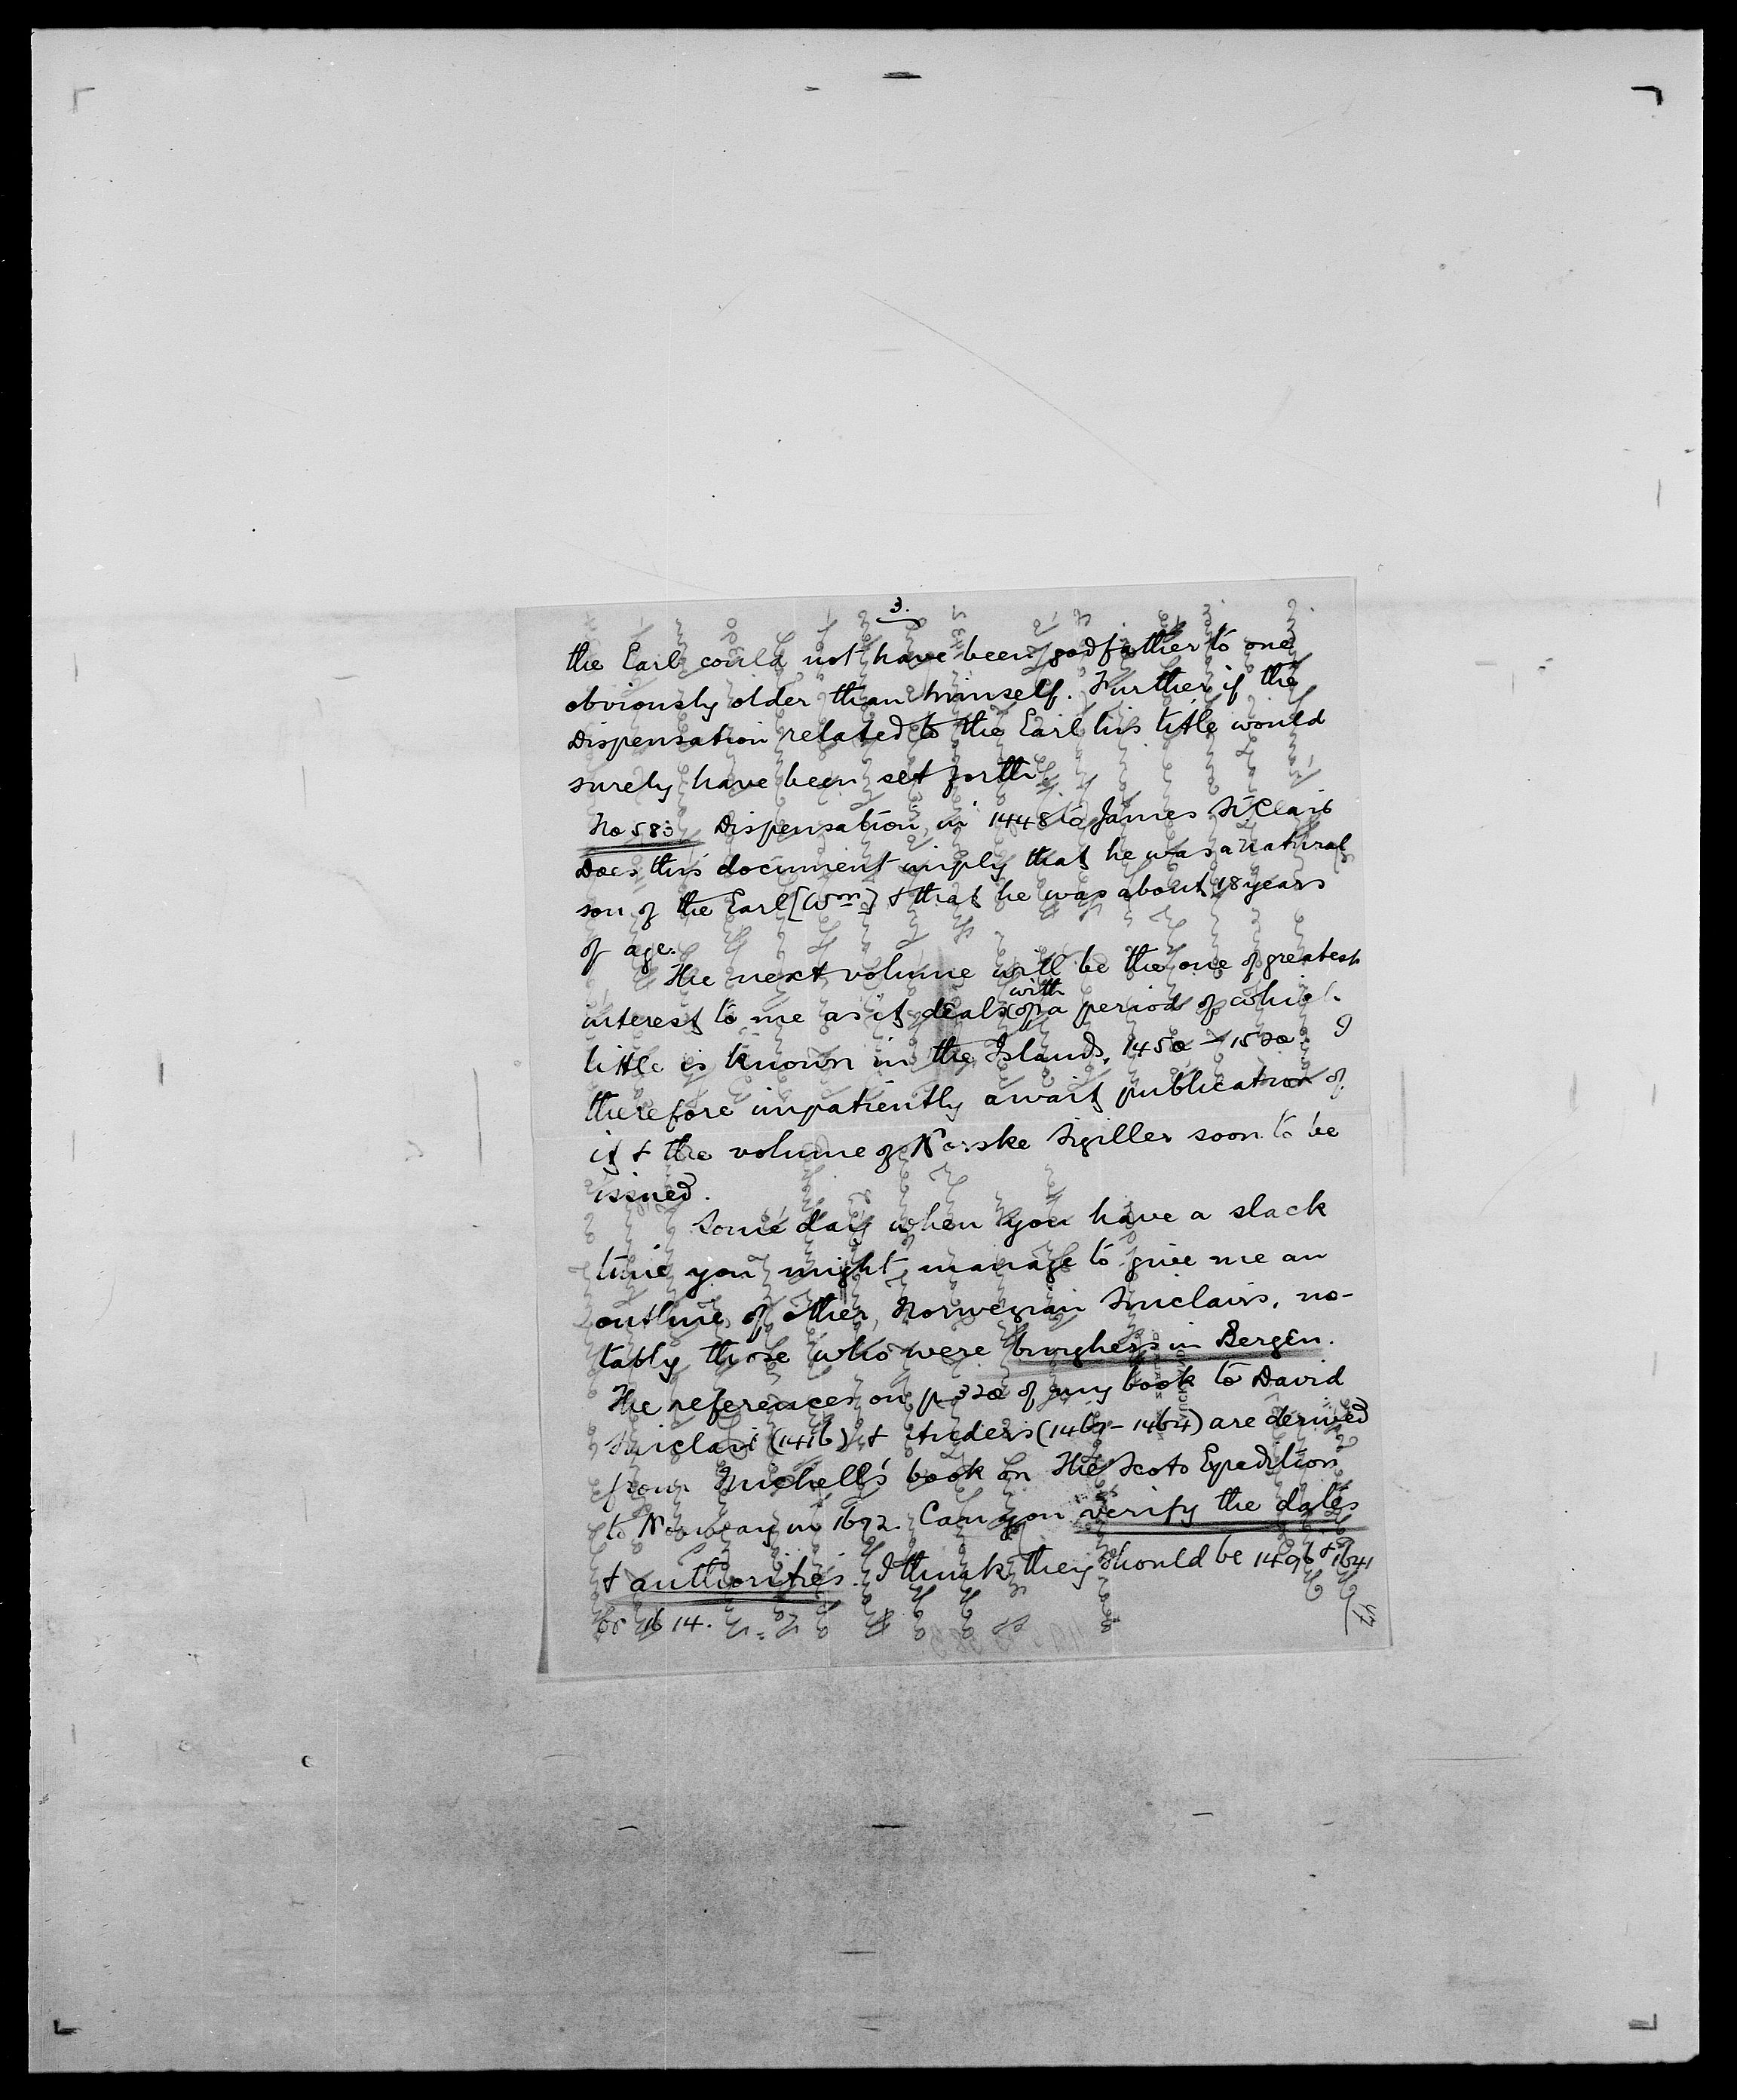 3.
the Earl could not have been godfather to one
obviously older than himself. Further if the
Dispensation related to the Earl his title would
surely have been set forth
No 583 Dispensation in 1448 to James St Clair
Does this document imply that he was a natural
son of the Earl [Wm] & that he was about 18 years
of age.
The next volume will be the one of greatest
with
interest to me as it deals of a period of which
little is known in the Islands, 1450 – 1520. I
therefore impatiently await publication of
it & the volume of Norske Sigiller soon to be
issued.
Some day when you have a slack
time you might manage to give me an
outline of other, Norwegian Sinclairs, no-
tably those who were burghers in Bergen.
The references on p 320 of my book to David
Sinclair (1416) & Anders (1467 - 1464) are derived
from Michell's book on The Scots Expedition
to Norway in 1612. Can you verify the dates
& authorities. I think they should be 1496 & 1641
or 1614.